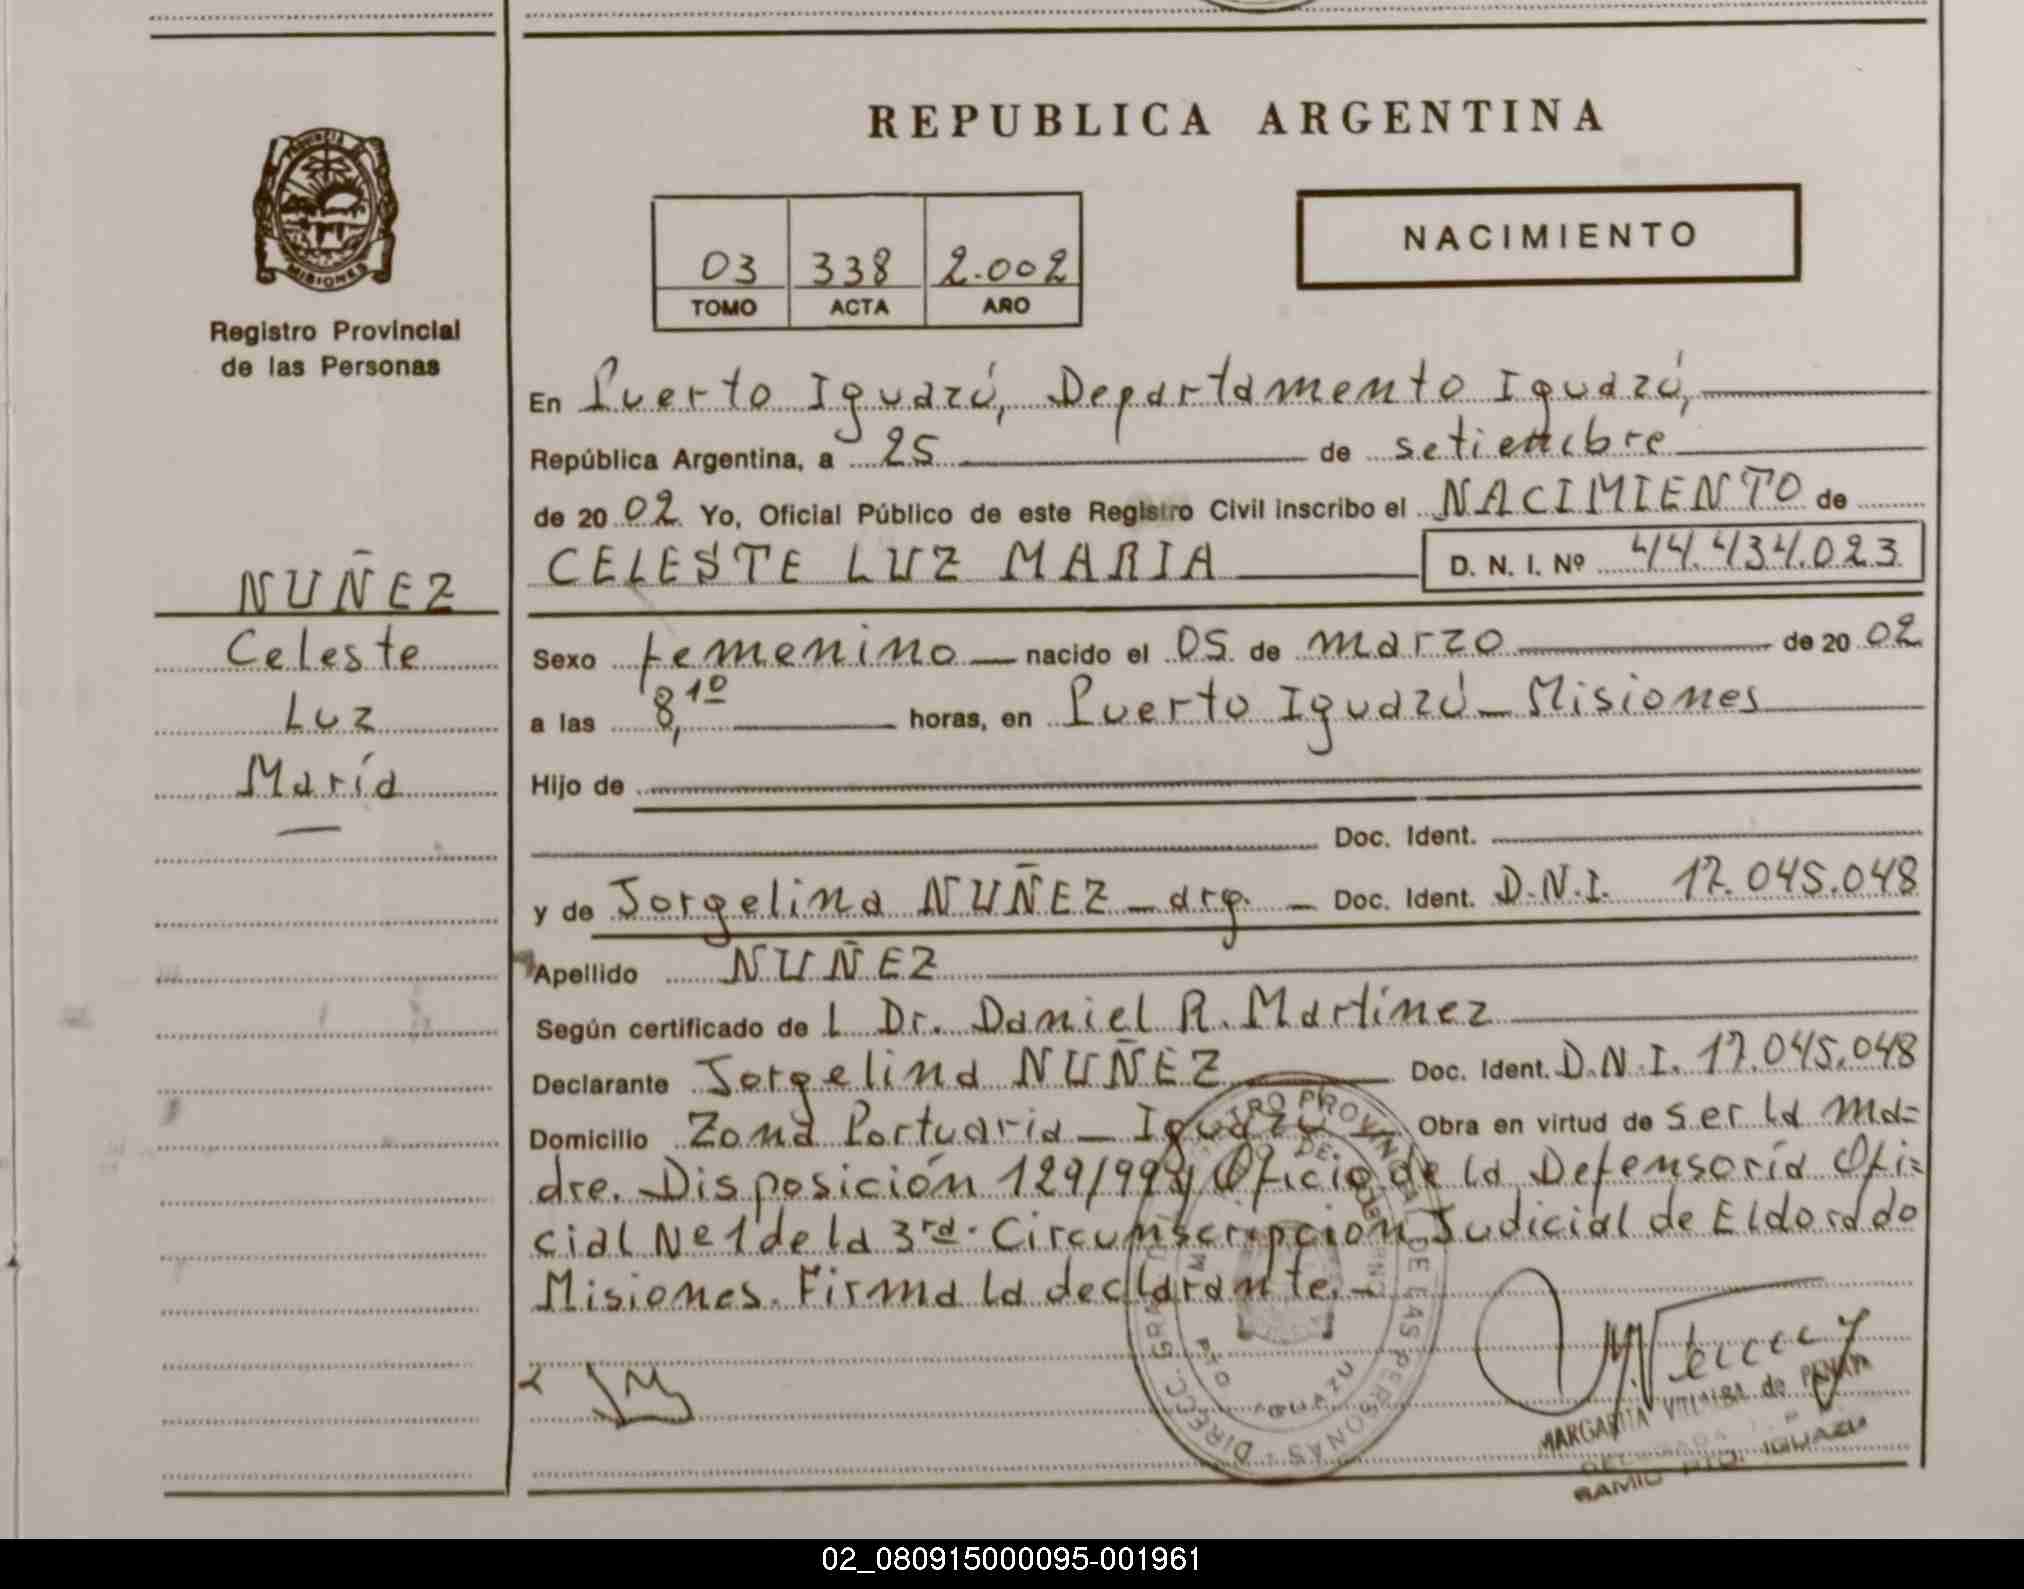 REPUBLICA ARGENTINA
PROVINCIA DE
MISIONES
Registro Provincial
de las Personas
NUÑEZ
Celeste
Luz
María
03 338 2.002
TOMO ACTA AÑO
NACIMIENTO
En Puerto Iguazú, Departamento Iguazú,
República Argentina, a 25 de setiembre
de 20 02 Yo, Oficial Público de este Registro Civil inscribo el NACIMIENTO de
CELESTE LUZ MARIA D. N. I. Nº 44.434.023
Sexo femenino nacido el 05 de marzo de 20 02
a las 8,10 horas, en Puerto Iguazú - Misiones
Hijo de
Doc. Ident.
y de Jorgelina NUÑEZ - arg. - Doc. Ident. D.N.I. 17.045.048
Apellido NUÑEZ
Según certificado de l Dr. Daniel R. Martínez
Declarante Jorgelina NUÑEZ Doc. Ident. D.N.I. 17.045.048
Domicilio Zona Portuaria - Iguazú - Obra en virtud de ser la ma=
dre. Disposición 129/99 y Oficio de la Defensoría Ofi=
cial Nº 1 de la 3ra. Circunscripción Judicial de Eldorado
Misiones. Firma la declarante.-
MARGARITA VILLALBA de
PTO. IGUAZU
02_080915000095-001961